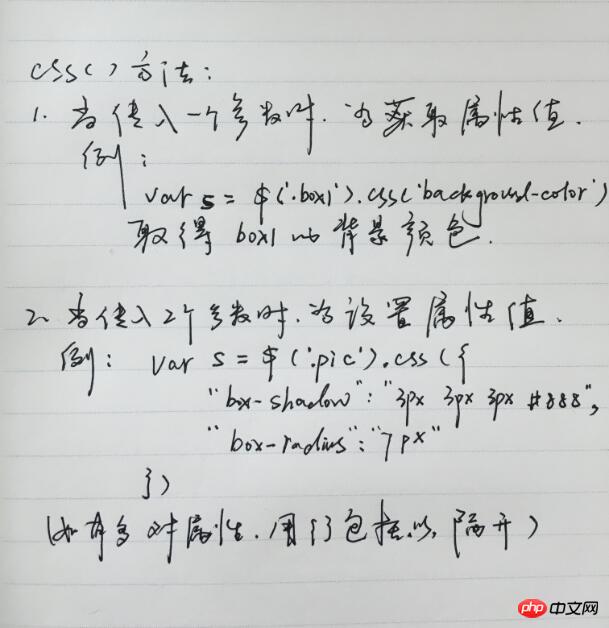 css()方法:
1. 当传入一个参数时.为获取属性值.
例:
var s = $('.box1').css('background-color')
取得 box1 的背景颜色.
2. 当传入2个参数时.为设置属性值.
例: var s = $('.pic').css({
"box-shadow":"3px 3px 3px #888",
"box-radius":"7px"
})
(如有多对属性.用{}包括.以,隔开)
php 中文网